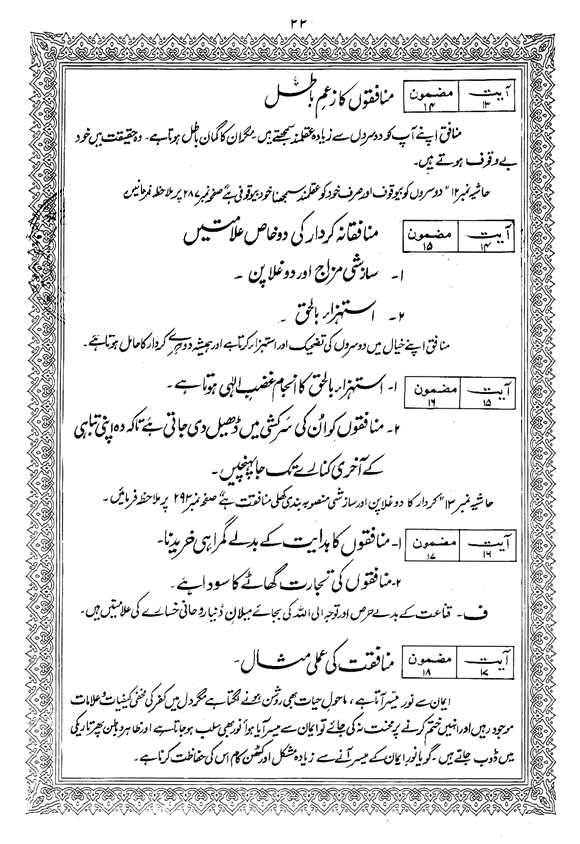 ۲۲
آیت ۱۳ مضمون ۱۴ منافقوں کا زعمِ باطل
منافق اپنے آپ کو دوسروں سے زیادہ عقلمند سمجھتے ہیں۔ مگر ان کا گمان باطل ہوتا ہے۔ وہ حقیقت میں خود
بے وقوف ہوتے ہیں۔
حاشیہ نمبر ۱۲ "دوسروں کو بیوقوف اور صرف خود کو عقلمند سمجھنا خود بیوقوفی ہے" صفحہ نمبر ۲۸۷ پر ملاحظہ فرمائیں
آیت ۱۴ مضمون ۱۵ منافقانہ کردار کی دو خاص علامتیں
۱۔ سازشی مزاج اور دوغلا پن ۔
۲۔ استہزاء بالحق ۔
منافق اپنے خیال میں دوسروں کی تضحیک اور استہزاء کرتا ہے اور ہمیشہ دوہرے کردار کا حامل ہوتا ہے۔
آیت ۱۵ مضمون ۱۶ ۱۔ استہزاء بالحق کا انجام غضبِ الٰہی ہوتا ہے۔
۲۔ منافقوں کو اُن کی سرکشی میں ڈھیل دی جاتی ہے تاکہ وہ اپنی تباہی
کے آخری کنارے تک جا پہنچیں۔
حاشیہ نمبر ۱۳ "کردار کا دوغلا پن اور سازشی منصوبہ بندی کھلی منافقت ہے" صفحہ نمبر ۲۹۳ پر ملاحظہ فرمائیں۔
آیت ۱۶ مضمون ۱۷ ۱۔ منافقوں کا ہدایت کے بدلے گمراہی خریدنا۔
۲۔ منافقوں کی تجارت گھاٹے کا سودا ہے۔
ف۔ قناعت کے بدلے حرص اور توجہ الی اللہ کی بجائے میلانِ دنیا روحانی خسارے کی علامتیں ہیں۔
آیت ۱۷ مضمون ۱۸ منافقت کی عملی مثال۔
ایمان سے نور میسر آتا ہے، ماحولِ حیات بھی روشن ہونے لگتا ہے مگر دل میں کفر کی مخفی کیفیات و علامات
موجود رہیں اور انہیں ختم کرنے پر محنت نہ کی جائے تو ایمان سے میسر آیا ہوا نور بھی سلب ہو جاتا ہے اور ظاہر و باطن پھر تاریکی
میں ڈوب جاتے ہیں۔ گویا نورِ ایمان کے میسر آنے سے زیادہ مشکل اور کٹھن کام اس کی حفاظت کرنا ہے۔